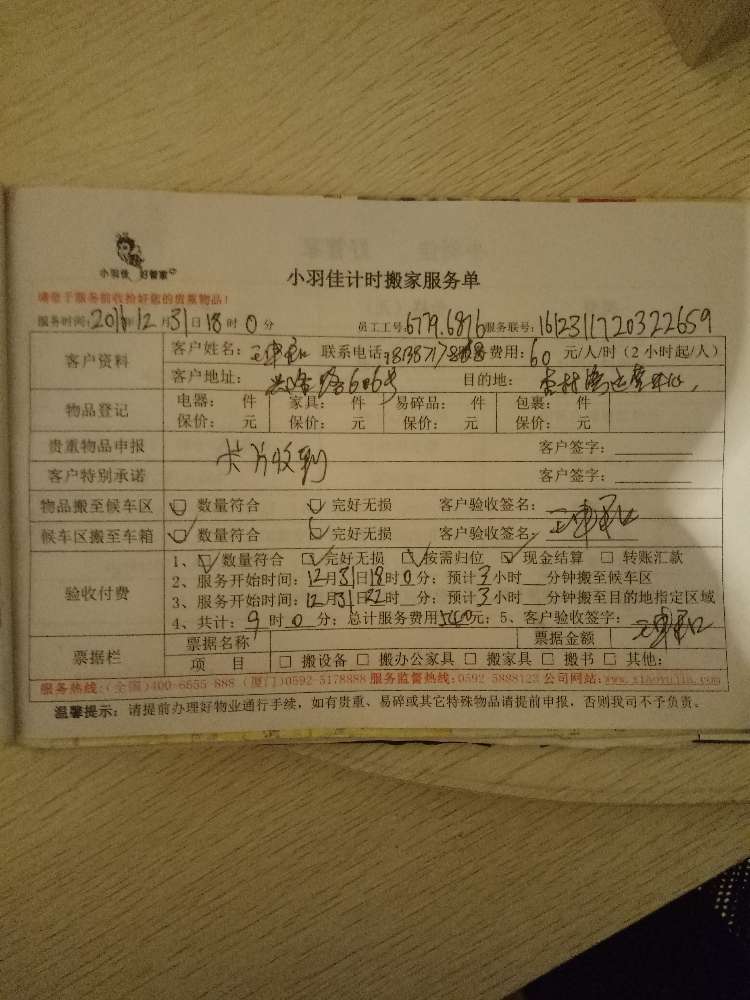 小羽佳 好管家
小羽佳计时搬家服务单
请您于服务前收拾好您的贵重物品！
服务时间：2016年12月31日18时0分 员工工号：6779.6876 服务联号：161231172032 2659
客户资料 客户姓名： 联系电话： 费用：60元/人/时（2小时起/人）
客户地址：路606号 目的地：
物品登记 电器： 件 家具： 件 易碎品： 件 包裹： 件
保价： 元 保价： 元 保价： 元 保价： 元
贵重物品申报 客户签字：
卡片收到
客户特别承诺 客户签字：
物品搬至候车区 数量符合 完好无损 客户验收签名：
候车区搬至车箱 数量符合 完好无损 客户验收签名：
验收付费 1、数量符合 完好无损 按需归位 现金结算 转账汇款
2、服务开始时间：12月31日18时0分；预计3小时 分钟搬至候车区
3、服务开始时间：12月31日22时 分；预计3小时 分钟搬至目的地指定区域
4、共计：9时0分；总计服务费用540元；5、客户验收签字：
票据栏 票据名称 票据金额
项 目 搬设备 搬办公家具 搬家具 搬书 其他：
服务热线：(全国)400-6555-888 (厦门)0592-5178888 服务监督热线：0592-5888123 公司网站：www.xiaoyujia.com
温馨提示：请提前办理好物业通行手续，如有贵重、易碎或其它特殊物品请提前申报，否则我司不予负责。